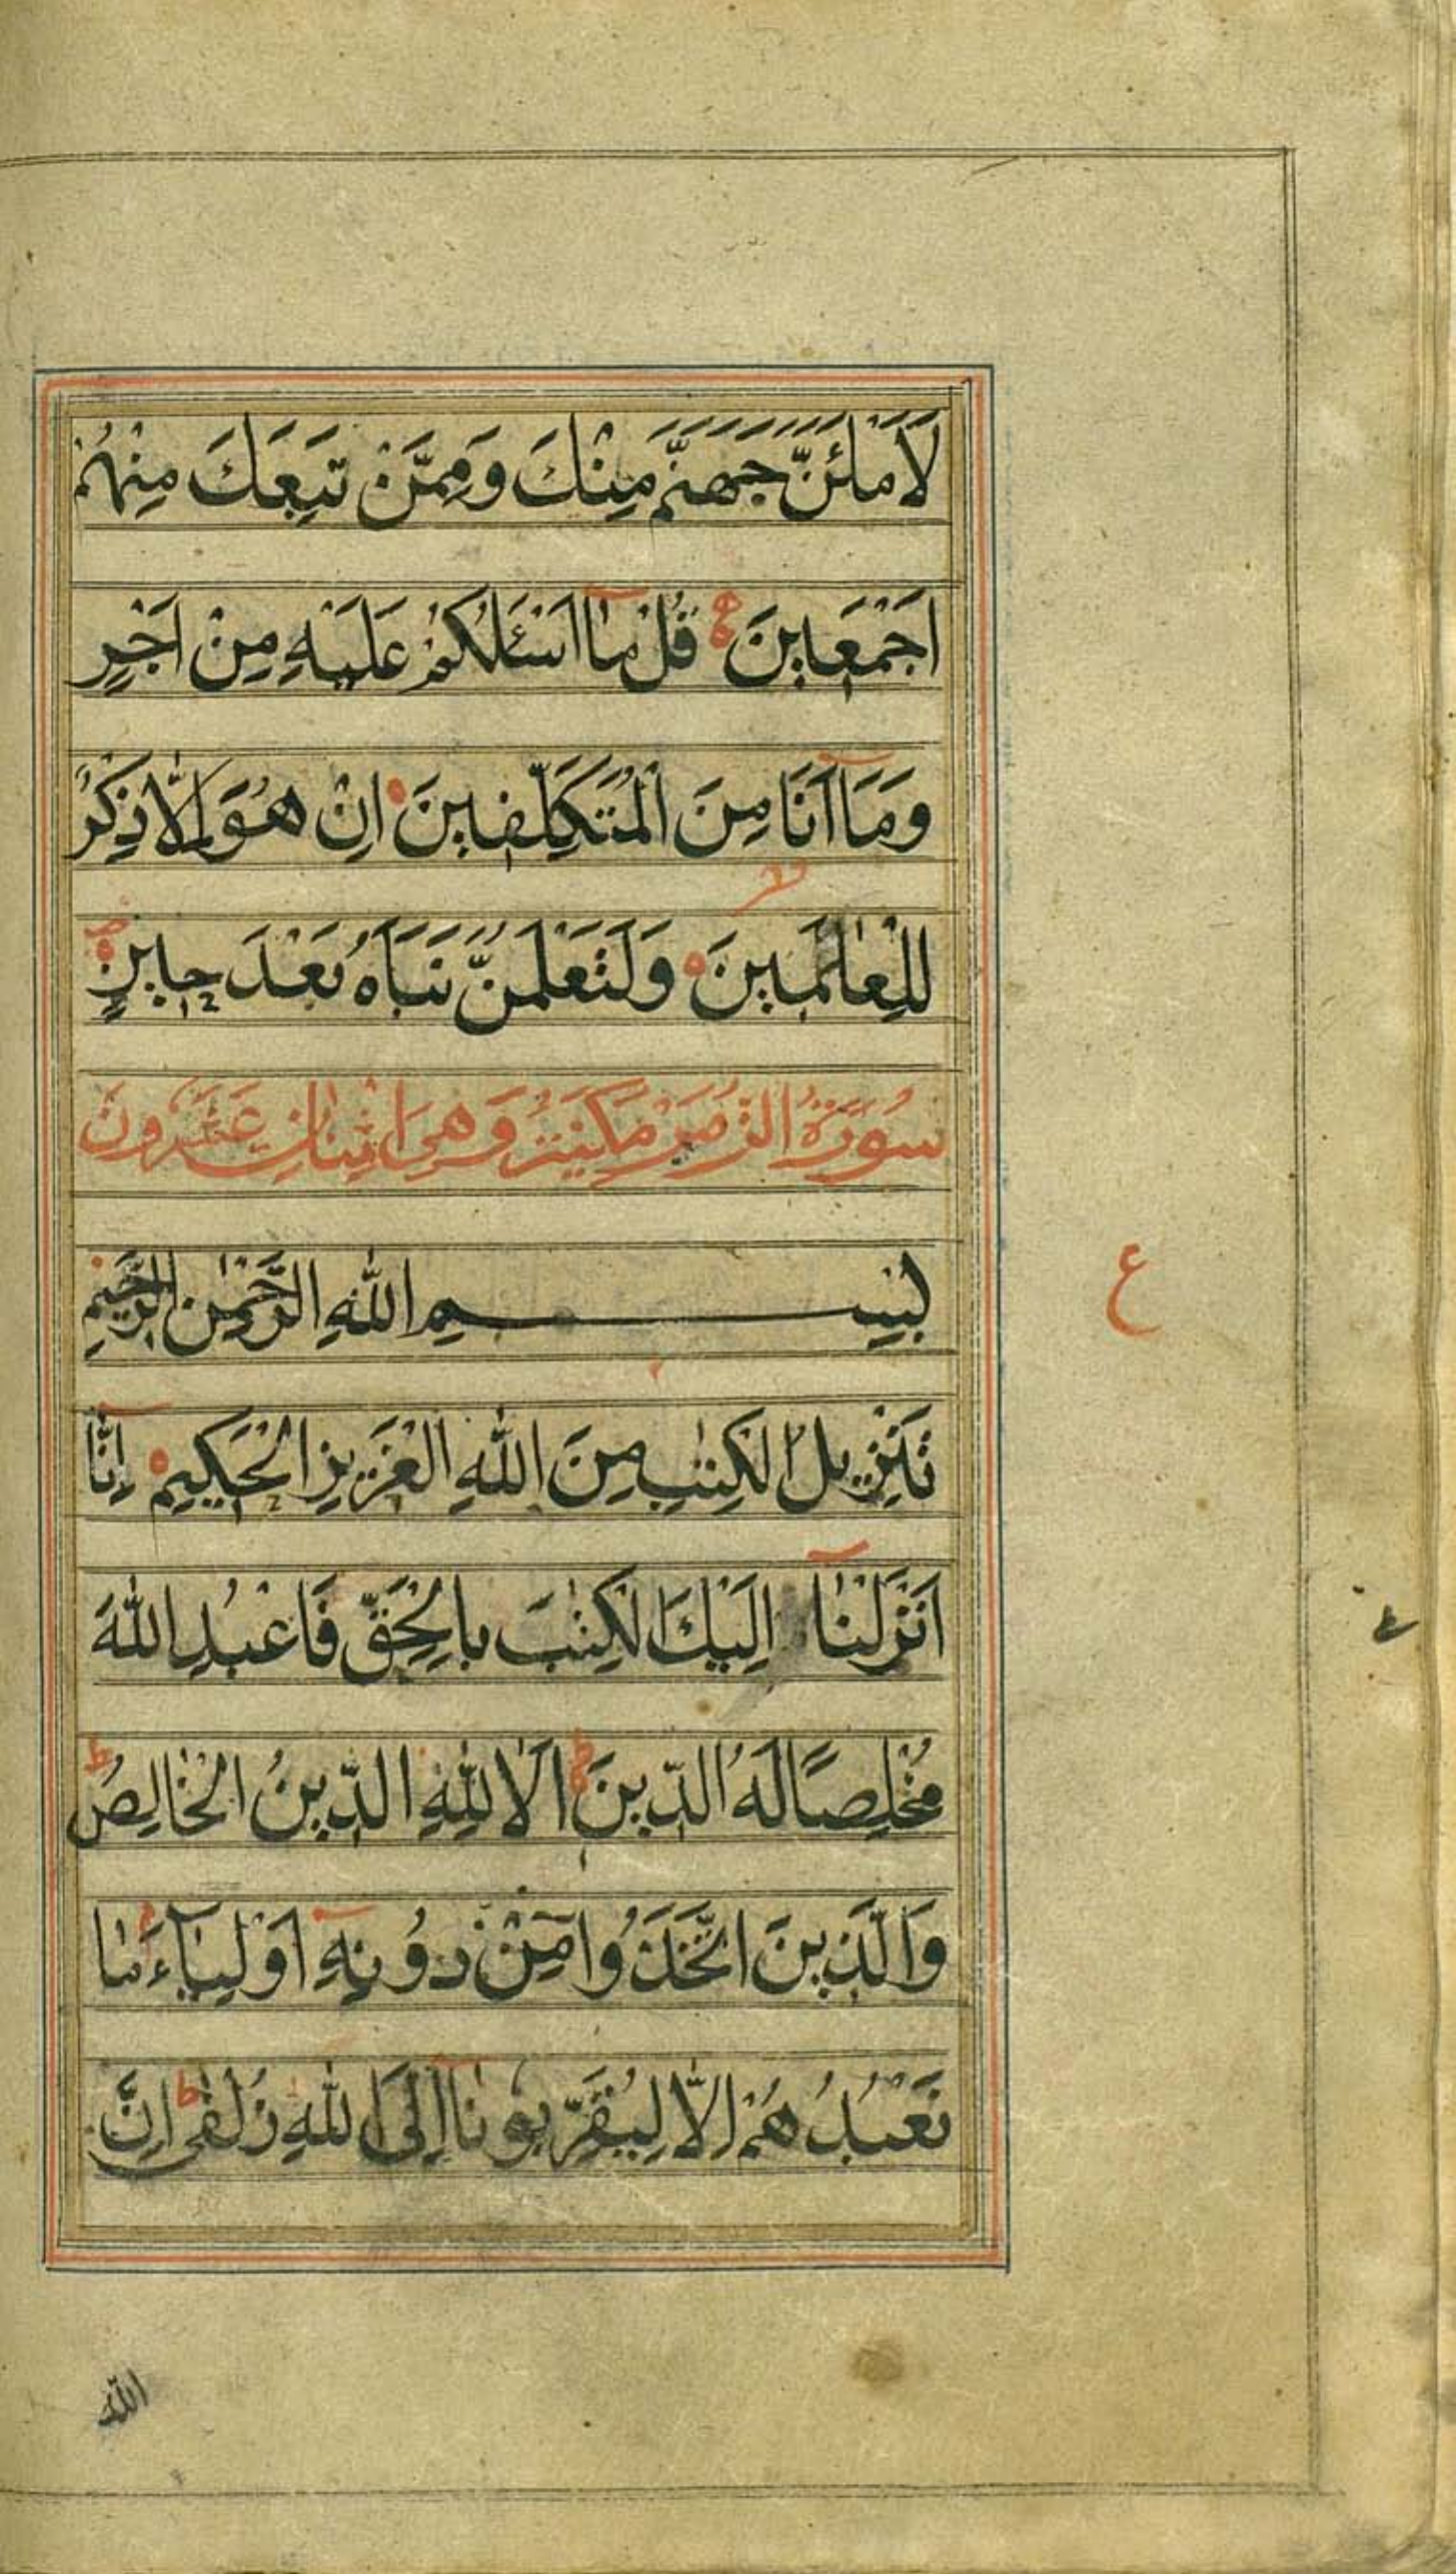 لَاَمْلَئَنَّ جَهَنَّمَ مِنْكَ وَمِمَّنْ تَبِعَكَ مِنْهُمْ
اَجْمَعِينَ قُلْ مٰٓا اَسْئَلُكُمْ عَلَيْهِ مِنْ اَجْرٍ
وَمَآ اَنَا مِنَ الْمُتَكَلِّفِينَ اِنْ هُوَ اِلَّا ذِكْرٌ
لِلْعٰالَمِينَ وَلَتَعْلَمُنَّ نَبَاَهُ بَعْدَ حِينٍ
سُورَةُ الزُّمَرِ مَكِّيَّةٌ وَهِيَ اثْنَانِ عَشَرُونَ
بِسْمِ اللّٰهِ الرَّحْمٰنِ الرَّحِيمِ
ع
تَنْزِيلُ الْكِتٰبِ مِنَ اللّٰهِ الْعَزِيزِ الْحَكِيمِ اِنَّآ
اَنْزَلْنٰآ اِلَيْكَ الْكِتٰبَ بِالْحَقِّ فَاعْبُدِ اللّٰهَ
مُخْلِصًا لَهُ الدِّينَ ط اَلَا لِلّٰهِ الدِّينُ الْخٰالِصُ ط
وَالَّذِينَ اتَّخَذُوا مِنْ دُونِهٓ اَوْلِيٰٓاءَ مٰا
نَعْبُدُهُمْ اِلَّا لِيُقَرِّبُونٰآ اِلَى اللّٰهِ زُلْفٰى ط اِنَّ
اللّٰه